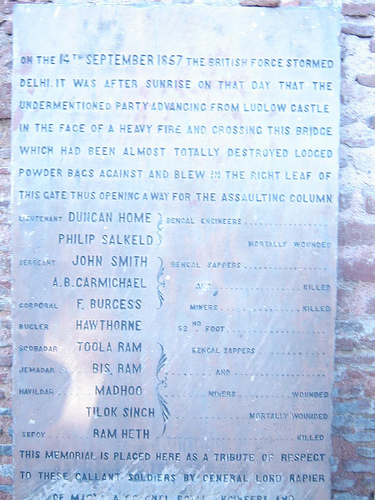 ON THE 14TH SEPTEMBER 1857 THE BRITISH FORCE STORMED
DELHI. IT WAS AFTER SUNRISE ON THAT DAY THAT THE
UNDERMENTIONED PARTY ADVANCING FROM LUDLOW CASTLE
IN THE FACE OF A HEAVY FIRE AND CROSSING THIS BRIDGE
WHICH HAD BEEN ALMOST TOTALLY DESTROYED LODGED
POWDER BAGS AGAINST AND BLEW IN THE RIGHT LEAF OF
THIS GATE THUS OPENING A WAY FOR THE ASSAULTING COLUMN
LIEUTENANT DUNCAN HOME BENGAL ENGINEERS
PHILIP SALKELD MORTALLY WOUNDED
SERGEANT JOHN SMITH BENGAL SAPPERS
A.B. CARMICHAEL AND KILLED
CORPORAL F. BURGESS MINERS KILLED
BUGLER HAWTHORNE 52ND FOOT
SOOBADAR TOOLA RAM BENGAL SAPPERS
JEMADAR BIS RAM AND
HAVILDAR MADHOO MINERS WOUNDED
TILOK SINGH MORTALLY WOUNDED
SEPOY RAM HETH KILLED
THIS MEMORIAL IS PLACED HERE AS A TRIBUTE OF RESPECT
TO THESE GALLANT SOLDIERS BY GENERAL LORD NAPIER
OF ENGINEERS AND